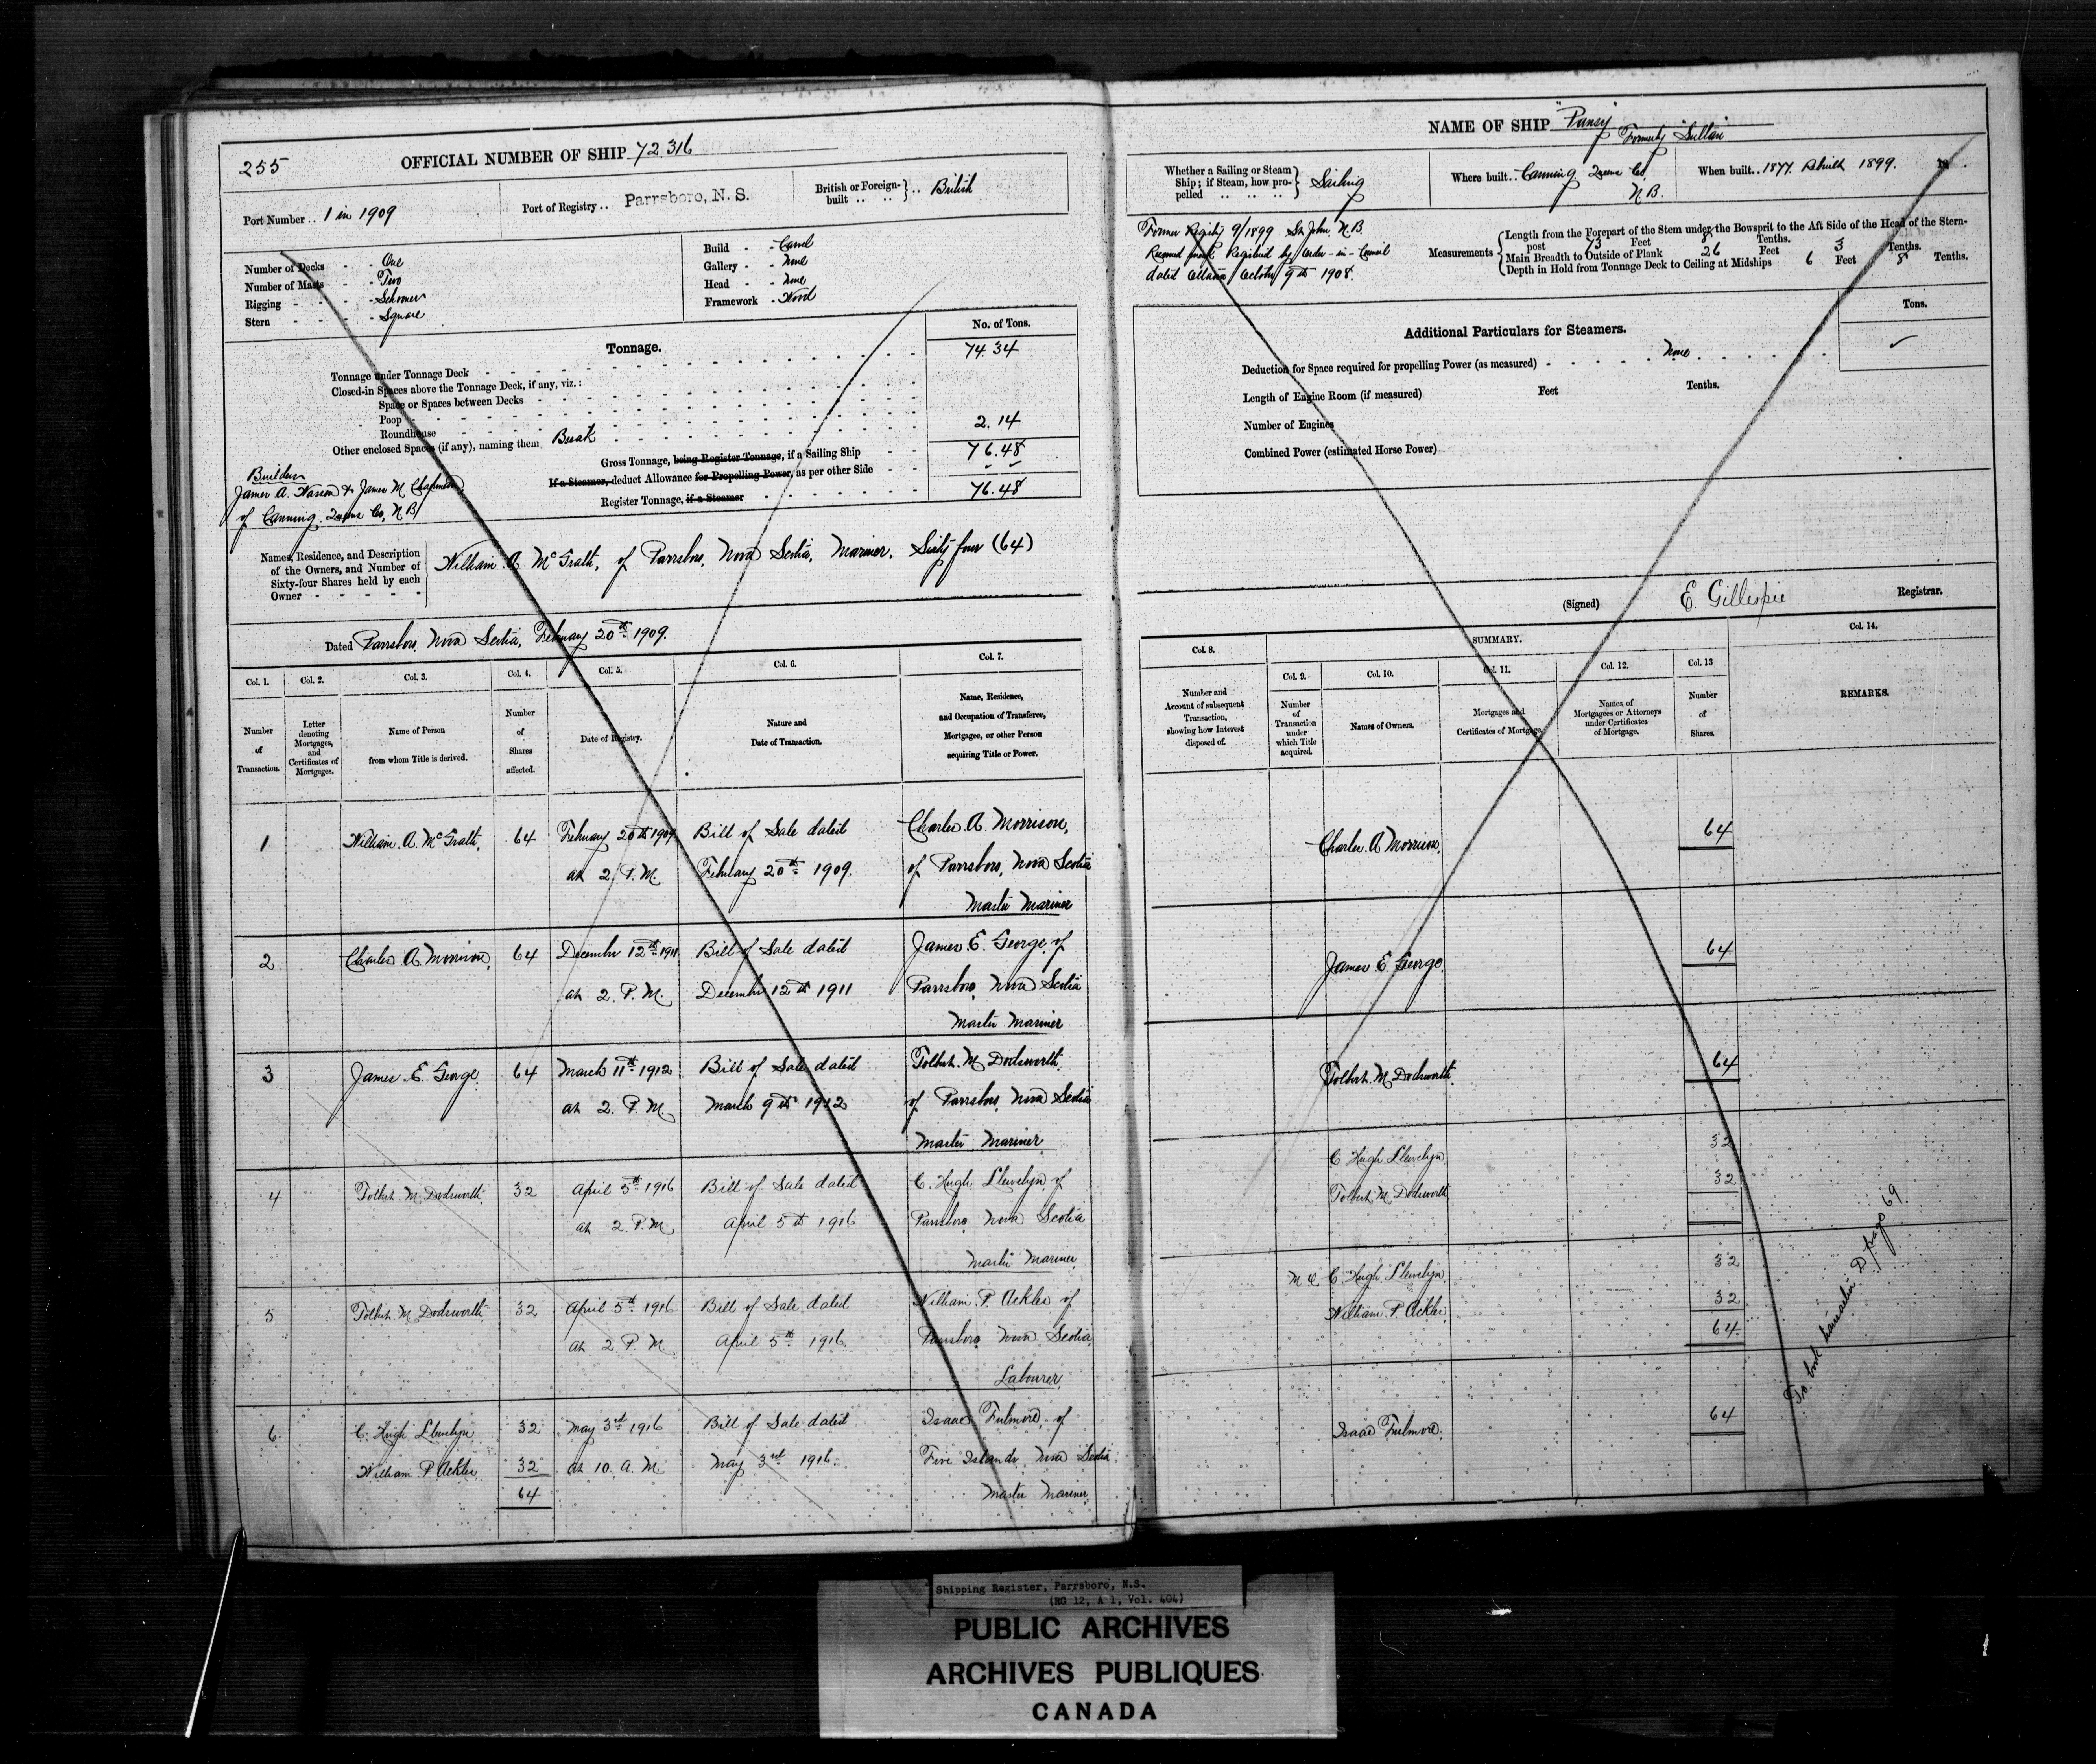 255
OFFICIAL NUMBER OF SHIP 72316
Port Number .. 1 in 1909
Port of Registry .. Parrsboro, N. S.
British or Foreign-built .. British
Number of Decks - - One
Number of Masts - - Two
Rigging - - - - Schooner
Stern - - - - Square
Build - - Carvel
Gallery - - None
Head - - None
Framework - Wood
Tonnage.
No. of Tons.
Tonnage under Tonnage Deck 74.34
Closed-in Spaces above the Tonnage Deck, if any, viz.:
Space or Spaces between Decks
Poop
Roundhouse
Other enclosed Spaces (if any), naming them Break 2.14
Gross Tonnage, being Register Tonnage, if a Sailing Ship 76.48
If a Steamer, deduct Allowance for Propelling Power, as per other Side
Register Tonnage, if a Steamer 76.48
Builders
James A. & James M. Chapman
of Canning Queens Co, N B
Names, Residence, and Description
of the Owners, and Number of
Sixty-four Shares held by each
Owner
William A McGrath, of Parrsboro, Nova Scotia, Mariner, Sixty four (64)
Dated Parrsboro, Nova Scotia, February 20th 1909.
Col. 1. Col. 2. Col. 3. Col. 4. Col. 5. Col. 6. Col. 7.
Number of Transaction.
Letter denoting Mortgages, and Certificates of Mortgages.
Name of Person from whom Title is derived.
Number of Shares affected.
Date of Registry.
Nature and Date of Transaction.
Name, Residence, and Occupation of Transferee, Mortgagee, or other Person acquiring Title or Power.
1 William A. McGrath, 64 February 20th 1909 Bill of Sale dated Charles A. Morrison,
at 2. P. M. February 20th 1909. of Parrsboro, Nova Scotia
Master Mariner
2 Charles A. Morrison, 64 December 12th 1911 Bill of Sale dated James E. George of
at 2. P. M. December 12th 1911 Parrsboro, Nova Scotia
Master Mariner
3 James E. George. 64 March 11th 1912 Bill of Sale dated Tolbert M Dodsworth
at 2. P. M. March 9th 1912 of Parrsboro, Nova Scotia
Master Mariner
4 Tolbert M Dodsworth 32 April 5th 1916 Bill of Sale dated C. Hugh Llewelyn of
at 2 P. M. April 5th 1916 Parrsboro Nova Scotia
Master Mariner
5 Tolbert M Dodsworth 32 April 5th 1916 Bill of Sale dated William P. Ackles of
at 2 P. M April 5th 1916. Parrsboro Nova Scotia
Labourer
6 C. Hugh Llewelyn 32 May 3rd 1916 Bill of Sale dated Isaac Fulmore, of
William P Ackles 32 at 10. A. M. May 3rd 1916. Five Islands Nova Scotia
64 Master Mariner
NAME OF SHIP "Pansy"
Formerly "Sultan"
Whether a Sailing or Steam
Ship; if Steam, how pro-
pelled
Sailing
Where built .. Canning Queens Co, N. B.
When built .. 1877. Rebuilt 1899. 18
Former Registry 9/1899 St. John, N. B.
by Order-in-Council
dated Ottawa October 9th 1908.
Measurements
Length from the Forepart of the Stem under the Bowsprit to the Aft Side of the Head of the Stern-
post 73 Feet 8 Tenths.
Main Breadth to Outside of Plank 26 Feet 3 Tenths.
Depth in Hold from Tonnage Deck to Ceiling at Midships 6 Feet 8 Tenths.
Additional Particulars for Steamers.
Tons.
Deduction for Space required for propelling Power (as measured) None
Length of Engine Room (if measured) Feet Tenths.
Number of Engines
Combined Power (estimated Horse Power)
(Signed) E. Gillespie Registrar.
SUMMARY.
Col. 8. Col. 9. Col. 10. Col. 11. Col. 12. Col. 13 Col. 14.
Number and Account of subsequent Transaction, showing how Interest disposed of.
Number of Transaction under which Title acquired.
Names of Owners.
Mortgages and Certificates of Mortgage.
Names of Mortgagees or Attorneys under Certificates of Mortgage.
Number of Shares.
REMARKS.
Charles A Morrison, 64
James E. George, 64
Tolbert M Dodsworth 64
C Hugh Llewelyn 32
Tolbert M Dodsworth 32
M O. C Hugh Llewelyn 32
William P Ackles, 32
64
Isaac Fulmore. 64
To book transaction D, page 69
Shipping Register, Parrsboro, N.S.
(RG 12, A 1, Vol. 404)
PUBLIC ARCHIVES
ARCHIVES PUBLIQUES
CANADA